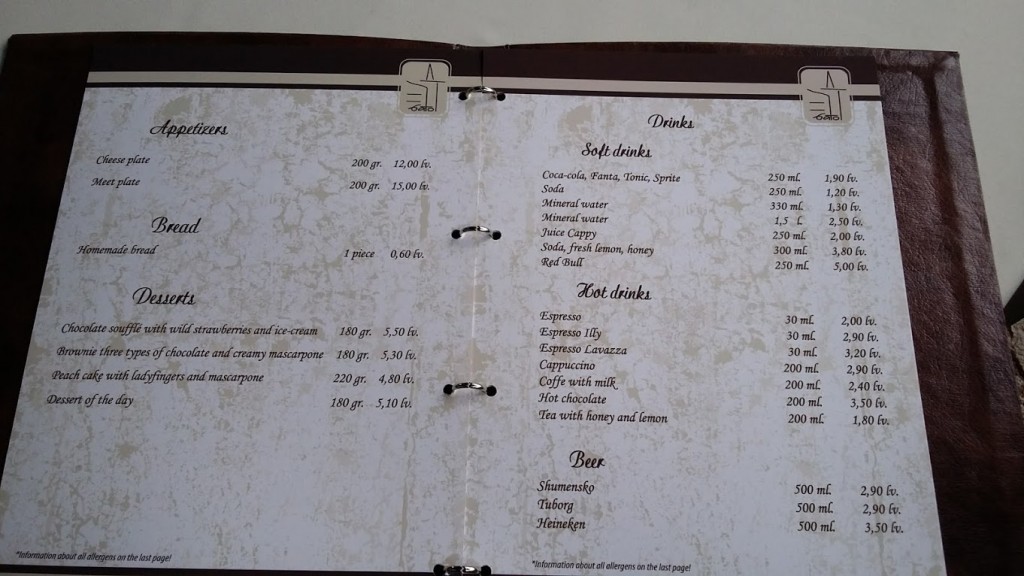 Appetizers
Cheese plate 200 gr. 12,00 lv.
Meet plate 200 gr. 15,00 lv.
Bread
Homemade bread 1 piece 0,60 lv.
Desserts
Chocolate souffle with wild strawberries and ice-cream 180 gr. 5,50 lv.
Brownie three types of chocolate and creamy mascarpone 180 gr. 5,30 lv.
Peach cake with ladyfingers and mascarpone 220 gr. 4,80 lv.
Dessert of the day 180 gr. 5,10 lv.
*Information about all allergens on the last page!
Drinks
Soft drinks
Coca-cola, Fanta, Tonic, Sprite 250 ml. 1,90 lv.
Soda 250 ml. 1,20 lv.
Mineral water 330 ml. 1,30 lv.
Mineral water 1,5 l. 2,50 lv.
Juice Cappy 250 ml. 2,00 lv.
Soda, fresh lemon, honey 300 ml. 3,80 lv.
Red Bull 250 ml. 5,00 lv.
Hot drinks
Espresso 30 ml. 2,00 lv.
Espresso Illy 30 ml. 2,90 lv.
Espresso Lavazza 30 ml. 3,20 lv.
Cappuccino 200 ml. 2,90 lv.
Coffe with milk 200 ml. 2,40 lv.
Hot chocolate 200 ml. 3,50 lv.
Tea with honey and lemon 200 ml. 1,80 lv.
Beer
Shumensko 500 ml. 2,90 lv.
Tuborg 500 ml. 2,90 lv.
Heineken 500 ml. 3,50 lv.
*Information about all allergens on the last page!